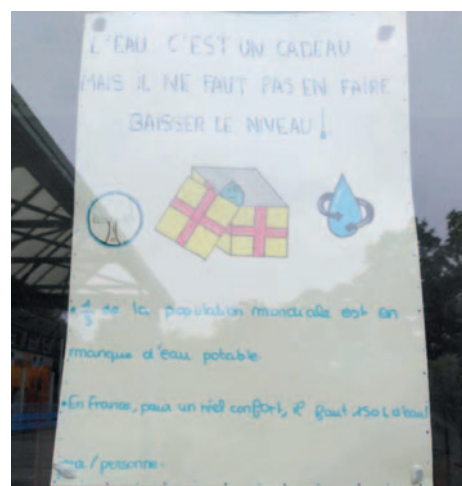 L'EAU C'EST UN CADEAU
MAIS IL NE FAUT PAS EN FAIRE
BAISSER LE NIVEAU !
• 1/3 de la population mondiale est en
manque d'eau potable.
• En France, pour un réel confort, il faut 150 L d'eau /
/ personne.